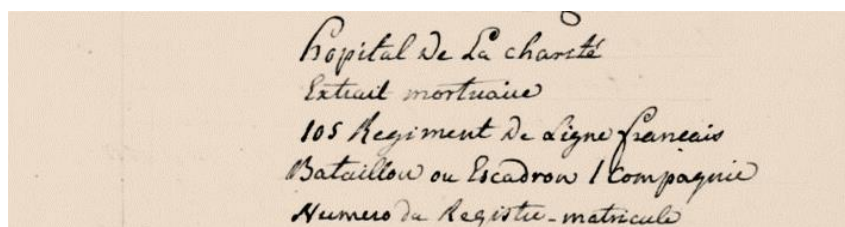 hopital De La charité
Extrait mortuaire
105 Regiment De Ligne francais
Bataillon ou Escadron 1 Compagnie
Numero du Registre-matricule